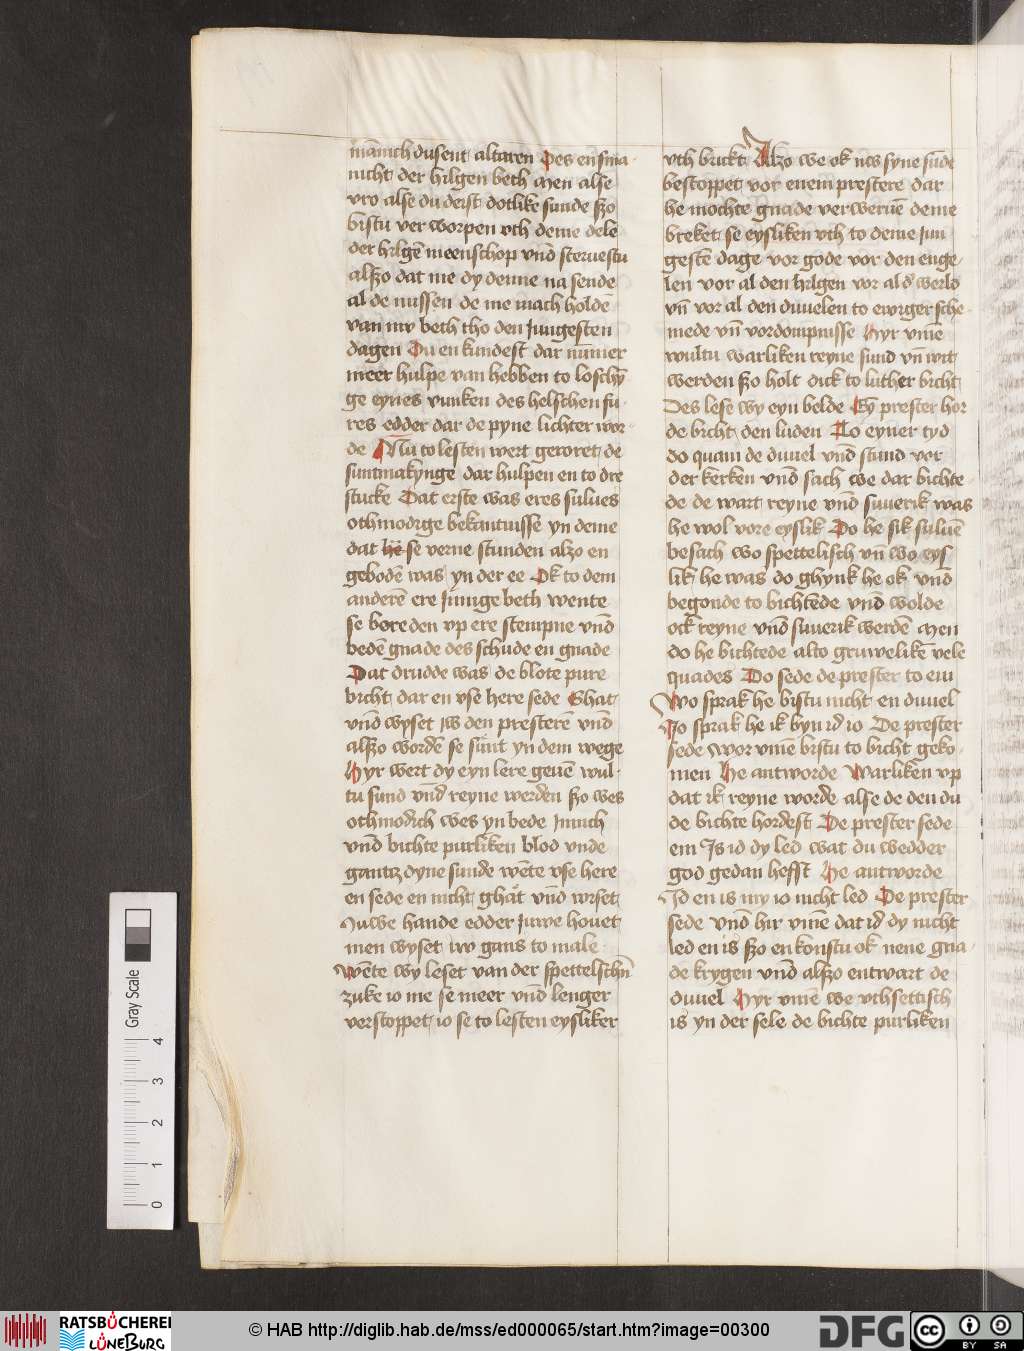 mānich dusent altaren Des en sma
nicht der hilgen beth Men alse
vro alse du deist dotlike sunde szo
bistu verworpen vth deme dele
der hilgē meenschop vnd steruestu
alszo dat me dy denne na sende
al de missen de me mach holdē
van nv beth tho den Jungesten
dagen Du en kundest dar nūmer
meer hulpe van hebben to loschȳ
ge eynes vunken des helschen fu
res edder dar de pyne lichter wor
de Nu to lesten wert geroret de
suntmakynge dar hulpen en to dre
stucke Dat erste was eres sulues
othmodige bekantnisse yn deme
dat se verne stunden alzo en
gebodē was yn der ee Ok to dem
anderē ere Jnnige beth wente
se boreden vp ere stempne vnd
bedē gnade des schude en gnade
Dat drudde was de blote pure
bicht dar en vse here sede Ghat
vnd wyset iw den presterē vnd
alszo wordē se sunt yn dem wege
Hyr wert dy eyn lere geuē wul
tu sund vnd reyne werden szo wes
othmodich wes yn bede Jnnich
vnd bichte purliken blod vnde
gantz dyne sunde wēte vse here
en sede en nicht ghat vnd wiset
Juwe hande edder Juwe houet
men wyset iw gans to male
Wēte wy leset van der spettelschn̄
zuke io me se meer vnd lenger
verstoppet io se to lesten eysliker
vth brickt Alzo we ok nw syne sūde
bestoppet vor enem prestere dar
he mochte gnade verweruē deme
breket se eysliken vth to deme Jun
gestē dage vor gode vor den enge
len vor al den hilgen vor al d' werld
vn̄ vor al den duuelen to ewiger sche
mede vn̄ vordompnisse Hyr vmē
wultu warliken reyne sund vn̄ wit
werden szo holt dick to luther bicht
Des lese wy eyn belde Ey prester hor
de bicht den luden To eyner tyd
do quam de duuel vnd stund vor
der kerken vnd sach we dar bichte
de de wart reyne vnd suuerik was
he wol vore eyslik Do he sik suluē
besach wo spettelisch vn̄ wo eys
lik he was do ghynk he ok vnd
begonde to bichtēde vnd wolde
ock reyne vnd suuerik werdē Men
do he bichtede alto gruwelike vele
quades Do sede de prester to em
Wo sprak he bistu nicht en duuel
Jo sprak he ik byn id io De prester
sede Wor vmē bistu to bicht geko
men He antworde Warliken vp
dat ik reyne worde alse de den du
de bichte hordest De prester sede
em Js id dy led wat du wedder
god gedan hefft He antworde
Jd en is my io nicht led De prester
sede vnd hir vmē dat id dy nicht
led en is szo en konstu ok nene gna
de krygen vnd alszo entwart de
duuel Hyr vmē we vthsettisch
is yn der sele de bichte purliken
Gray Scale
4
3
2
1
0
RATSBÜCHEREI
LÜNEBURG
© HAB http://diglib.hab.de/mss/ed000065/start.htm?image=00300
DFG
cc
BY SA